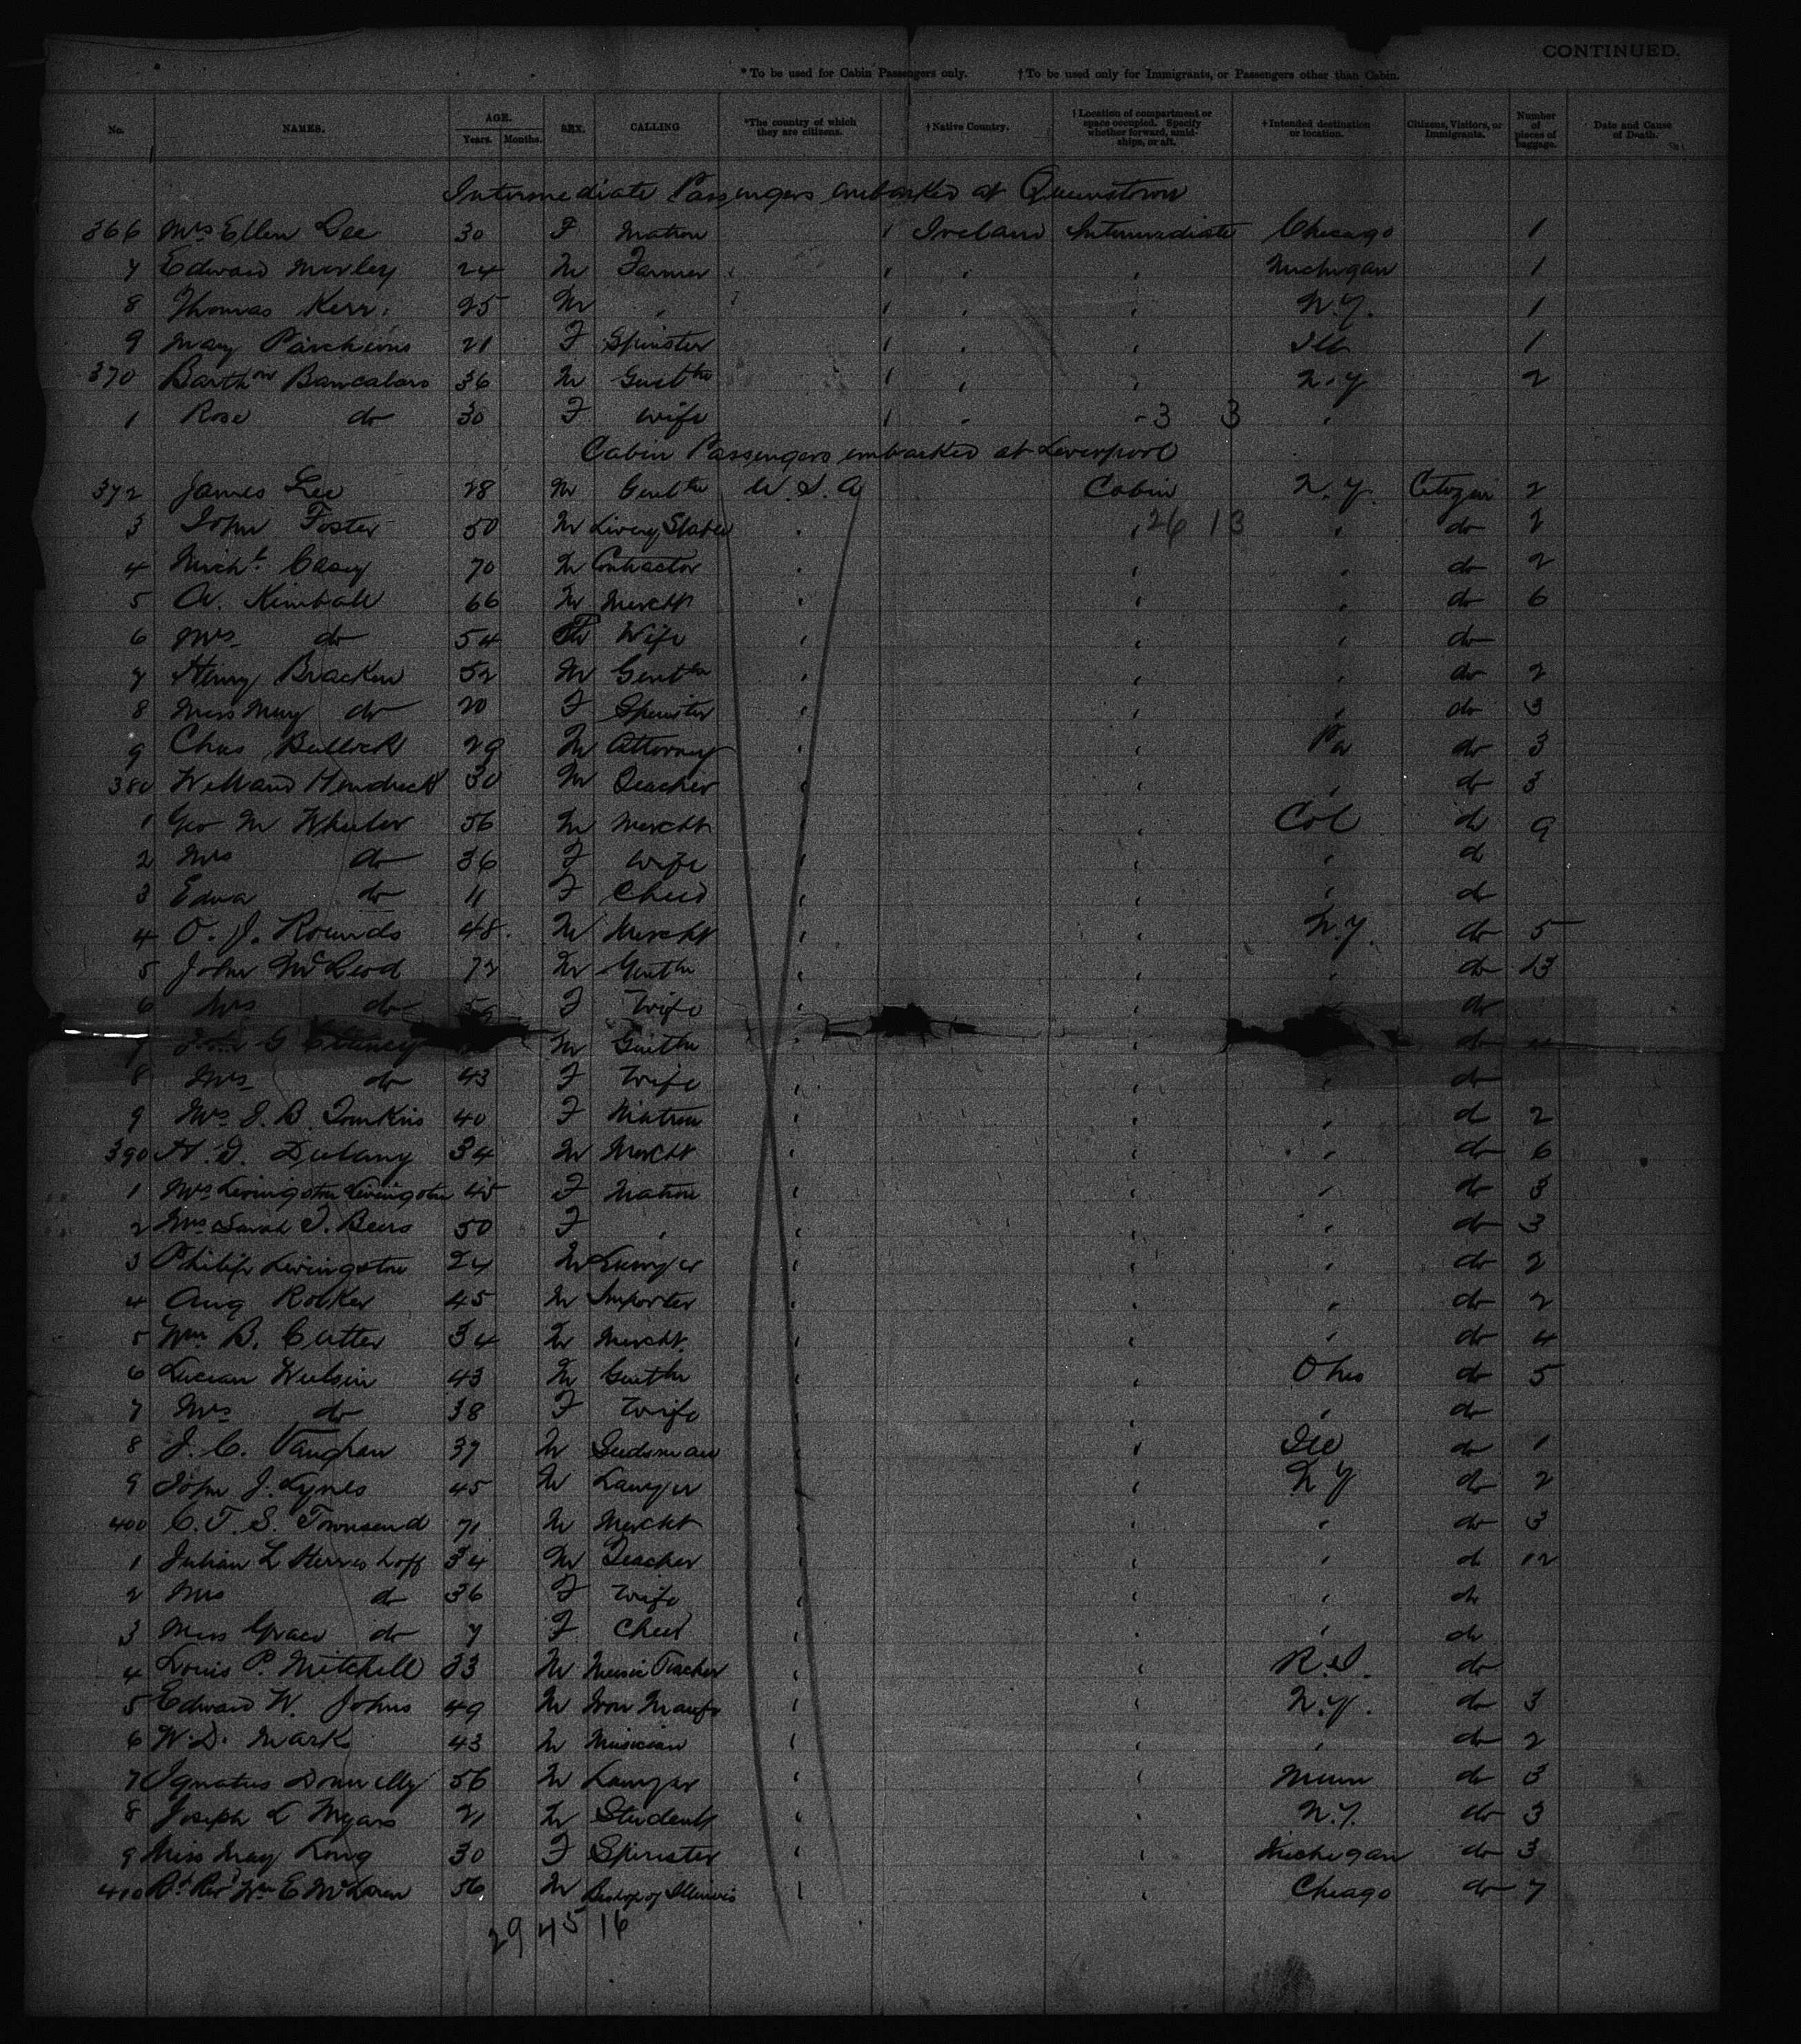 CONTINUED.
* To be used for Cabin Passengers only. † To be used only for Immigrants, or Passengers other than Cabin.
No. NAMES. AGE. Years. Months. SEX. CALLING *The country of which they are citizens. †Native Country. †Location of compartment or space occupied. Specify whether forward, amidships, or aft. †Intended destination or location. Citizens, Visitors, or Immigrants. Number of pieces of baggage. Date and Cause of Death.
Intermediate Passengers embarked at Queenstown
366 Mrs Ellen Lee 30 F Matron Ireland Intermediate Chicago 1
7 Edward Morley 24 M Farmer Michigan 1
8 Thomas Kerr 25 M N.Y. 1
9 Mary 21 F Spinster Ill 1
370 36 M Gentln N.Y 2
1 Rose do 30 F Wife 3 3
Cabin Passengers embarked at Liverpool
372 James Lee 28 M Gentln U.S.A Cabin N.Y. Citizen 2
3 John Foster 50 M Livery Stable 26 13 do 2
4 Michl Casey 70 M Contractor do 2
5 A. Kimball 66 M Mercht do 6
6 Mrs do 54 F Wife do
7 Henry Bracken 52 M Gentln do 2
8 Miss May do 20 F Spinster do 3
9 Chas Bullock 29 M Attorney Pa do 3
380 Welland Hendrick 30 M Teacher do 3
1 Geo M Wheeler 56 M Mercht Col do 9
2 Mrs do 36 F Wife do
3 Edna do 11 F Child do
4 O. J. Rounds 48 M Mercht N.Y. do 5
5 John McLeod 72 M Gentln do 13
6 Mrs do F Wife do
7 G M Gentln do
8 Mrs do 43 F Wife do
9 Mrs J. B. Tomkins 40 F Matron do 2
390 Dulany 34 M Mercht do 6
1 Mrs Livingston Livingston 45 F Matron do 3
2 Mrs Sarah J. Beers 50 F do 3
3 Philip Livingston 24 M Lawyer do 2
4 Aug Rolker 45 M Importer do 2
5 Wm B. Cutter 34 M Mercht do 4
6 Lucian Wulsin 43 M Gentln Ohio do 5
7 Mrs do 38 F Wife do
8 J. C. Vaughan 37 M Seedsman Ill do 1
9 John J. Lynes 45 M Lawyer N.Y do 2
400 C. T. S. Townsend 71 M Mercht do 3
1 Julian L Herreshoff 34 M Teacher do 12
2 Mrs do 36 F Wife do
3 Miss Grace do 7 F Child do
4 Louis P. Mitchell 33 M Music Teacher R.I. do
5 Edward W. Johns 49 M Iron Manufr N.Y. do 3
6 W. D. Mark 43 M Musician do 2
7 Ignatius Donnelly 56 M Lawyer Minn do 3
8 Joseph L Myars 21 M Student N.Y. do 3
9 Miss May Long 30 F Spinster Michigan do 3
410 Rt Revd Wm E McLaren 56 M Bishop of Illinois Chicago do 7
29 45 16